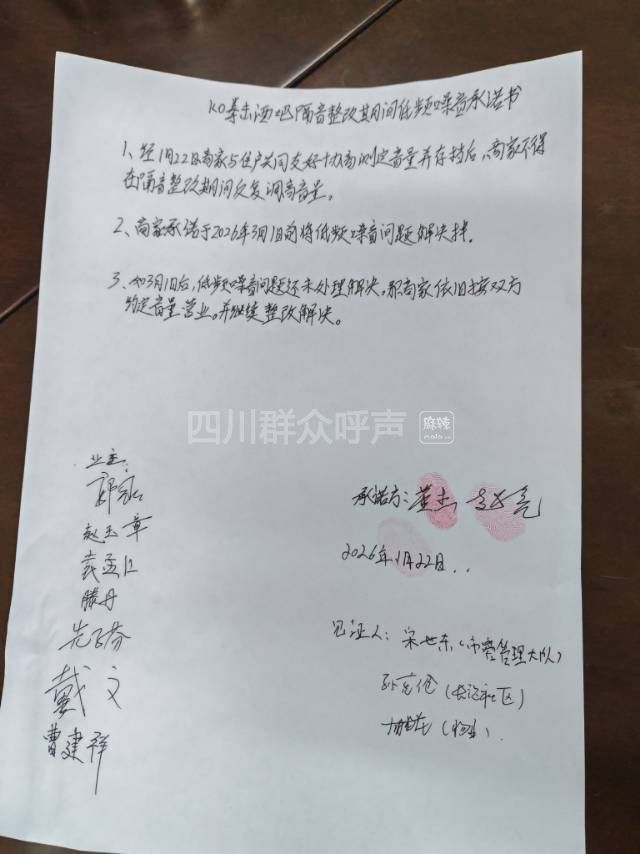 KO拳击酒吧隔音整改期间低频噪音承诺书
1、经1月22日商家与住户共同友好协商测定音量并存档后,商家不得
在隔音整改期间反复调高音量。
2、商家承诺于2026年3月1日前将低频噪音问题解决掉。
3、如3月1日后,低频噪音问题还未处理解决,那商家依旧按双方
约定音量营业。并继续整改解决。
四川群众呼声 麻辣 mala.cn
业主:
赵玉章
袁孟江
滕丹
戴文
曹建祥
承诺方:董杰
2026年1月22日..
见证人:宋世东(市容管理大队)
(社区)